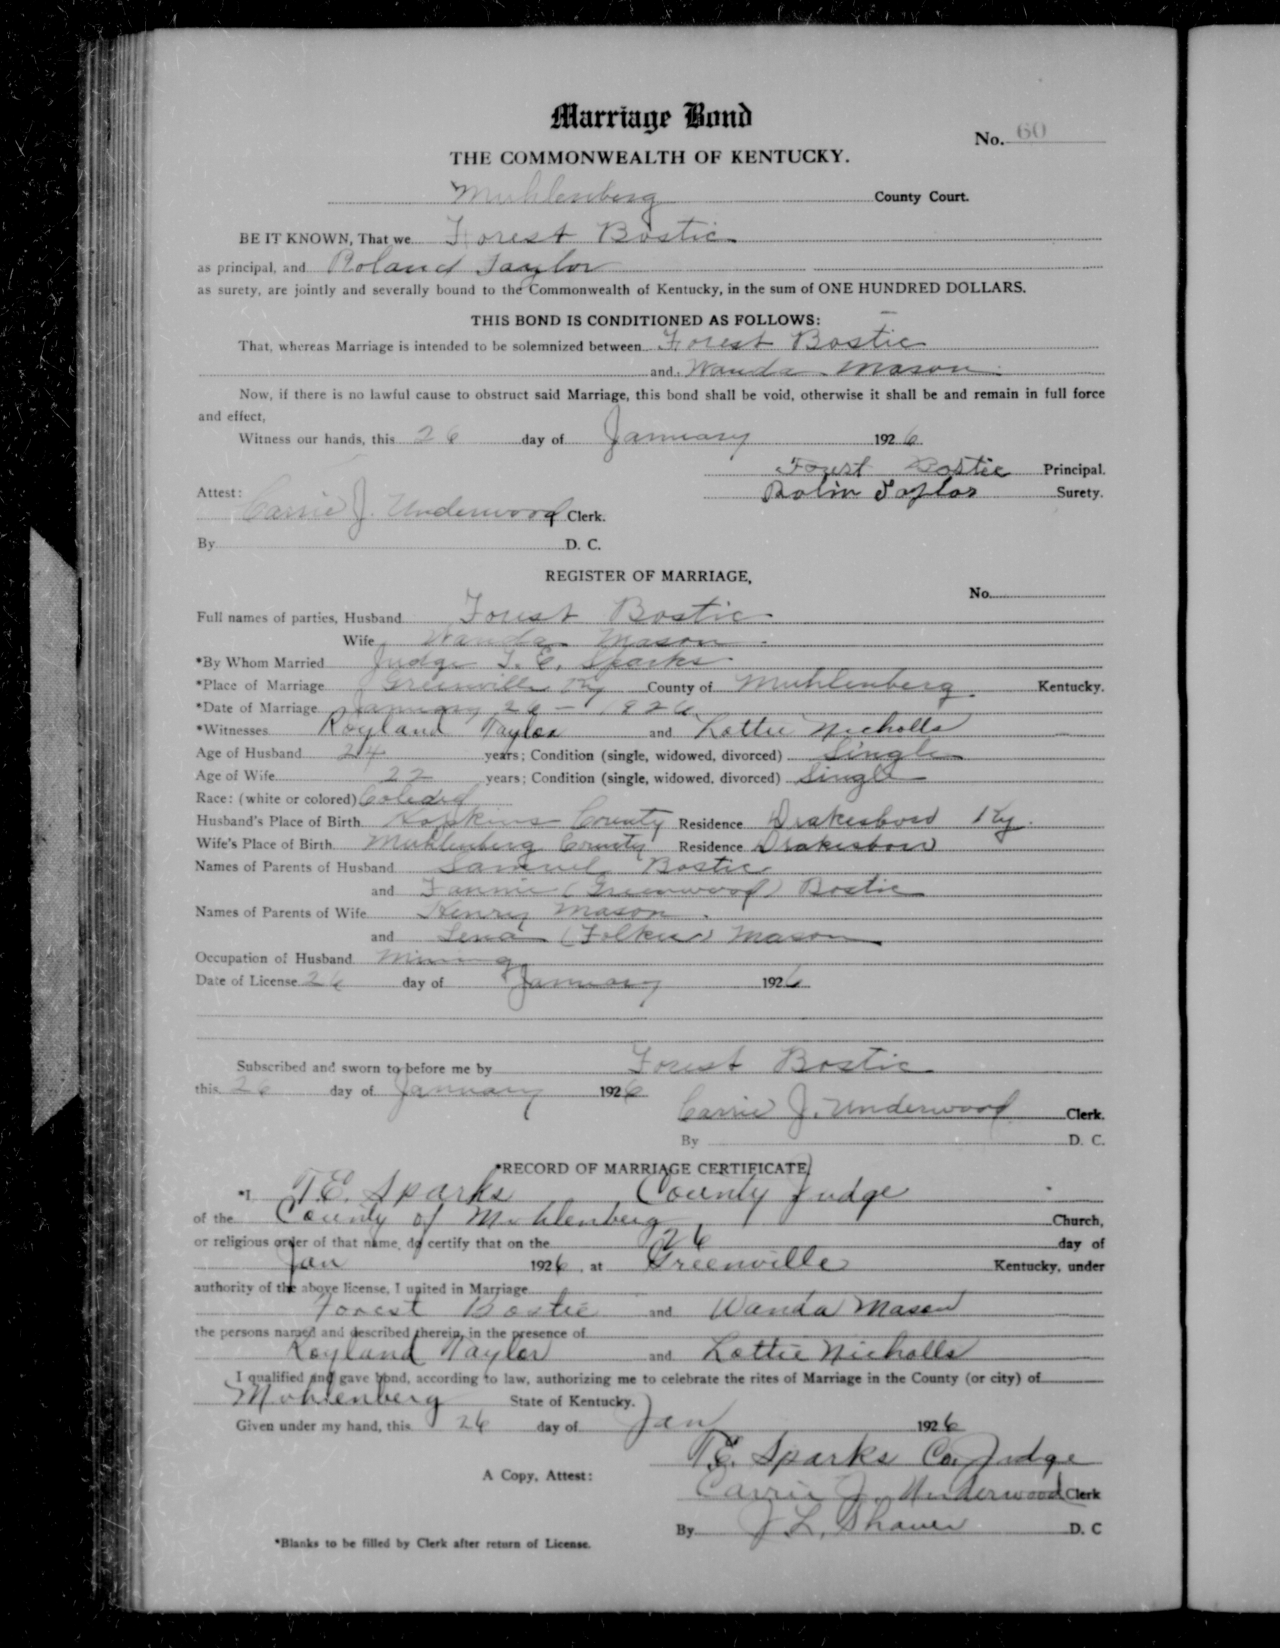 Marriage Bond
No. 60
THE COMMONWEALTH OF KENTUCKY.
Muhlenberg County Court.
BE IT KNOWN, That we Forest Bostic
as principal, and Roland Taylor
as surety, are jointly and severally bound to the Commonwealth of Kentucky, in the sum of ONE HUNDRED DOLLARS.
THIS BOND IS CONDITIONED AS FOLLOWS:
That, whereas Marriage is intended to be solemnized between Forest Bostic
and Wanda Mason
Now, if there is no lawful cause to obstruct said Marriage, this bond shall be void, otherwise it shall be and remain in full force
and effect,
Witness our hands, this 26 day of January 1926
Forest Bostic Principal.
Rolin Taylor Surety.
Attest:
Carrie J. Underwood Clerk.
By D. C.
REGISTER OF MARRIAGE,
No.
Full names of parties, Husband Forest Bostic
Wife Wanda Mason
*By Whom Married Judge T. E. Sparks
*Place of Marriage Greenville Ky County of Muhlenberg Kentucky.
*Date of Marriage January 26 - 1926
*Witnesses Royland Taylor and Lottie Nicholls
Age of Husband 24 years; Condition (single, widowed, divorced) Single
Age of Wife 22 years; Condition (single, widowed, divorced) Single
Race: (white or colored) Colored
Husband's Place of Birth Hopkins County Residence Drakesboro Ky.
Wife's Place of Birth Muhlenberg County Residence Drakesboro
Names of Parents of Husband Samuel Bostic
and Fannie (Greenwood) Bostic
Names of Parents of Wife Henry Mason
and Lena (Folkes) Mason
Occupation of Husband Mining
Date of License 26 day of January 1926
Subscribed and sworn to before me by Forest Bostic
this 26 day of January 1926
Carrie J. Underwood Clerk.
By D. C.
*RECORD OF MARRIAGE CERTIFICATE
*I T.E. Sparks County Judge
of the County of Muhlenberg Church,
or religious order of that name, do certify that on the 26 day of
Jan 1926, at Greenville Kentucky, under
authority of the above license, I united in Marriage
Forest Bostic and Wanda Mason
the persons named and described therein, in the presence of
Royland Taylor and Lottie Nicholls
I qualified and gave bond, according to law, authorizing me to celebrate the rites of Marriage in the County (or city) of
Muhlenberg State of Kentucky.
Given under my hand, this 26 day of Jan 1926
T.E. Sparks Co. Judge
A Copy, Attest:
Carrie J. Underwood Clerk
By J L. Shaver D. C
*Blanks to be filled by Clerk after return of License.